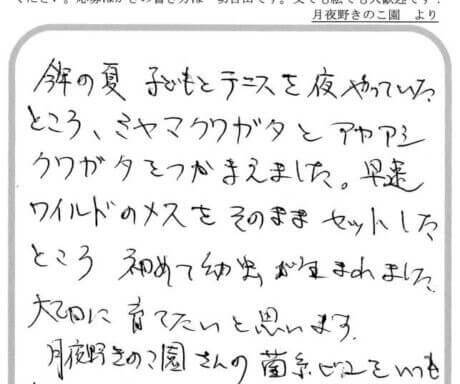 ください。応募はがきの書き方は
自由です。文でも絵でも大歓迎です！
月夜野きのこ園　より
今年の夏 子どもとテニスを夜やっていた
ところ、ミヤマクワガタと アカアシ
クワガタをつかまえました。早速
ワイルドのメスをそのまま セットした
ところ 初めて幼虫が生まれました
大切に 育てたいと思います。
月夜野きのこ園さんの 菌糸ビンをいつも